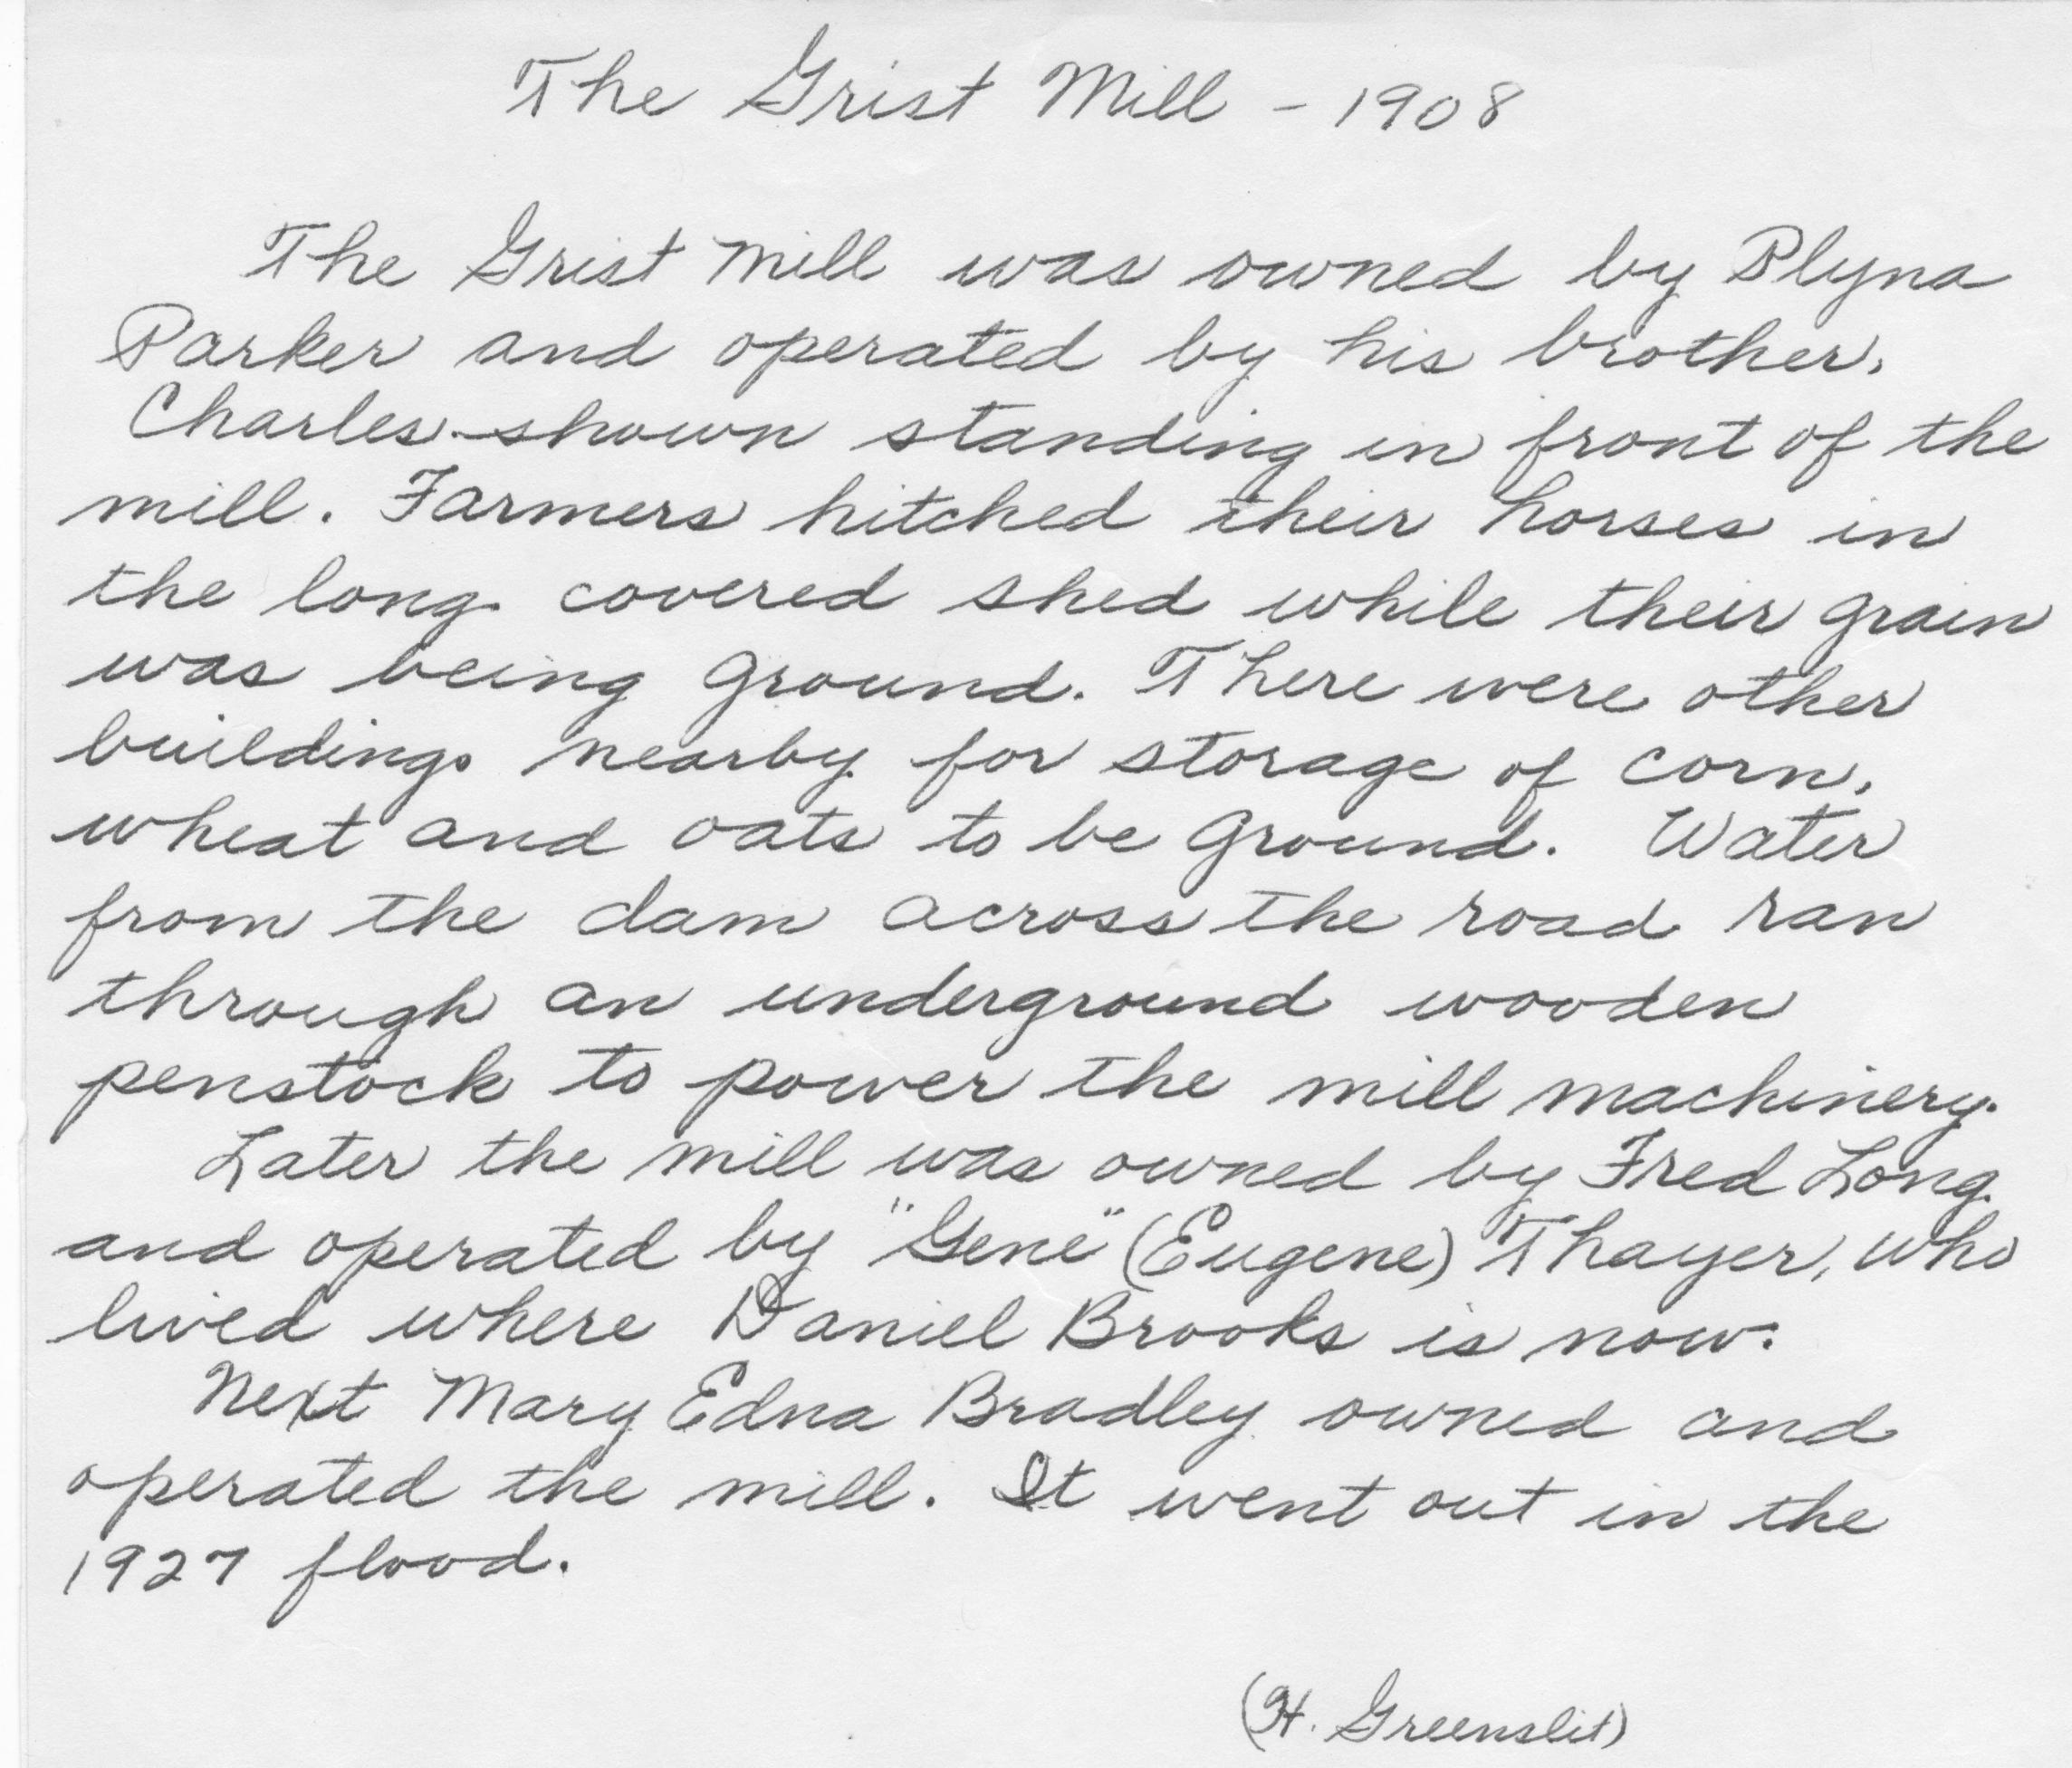 The Grist Mill - 1908
The Grist Mill was owned by Plyna
Parker and operated by his brother,
Charles - shown standing in front of the
mill. Farmers hitched their horses in
the long covered shed while their grain
was being ground. There were other
buildings nearby for storage of corn,
wheat and oats to be ground. Water
from the dam across the road ran
through an underground wooden
penstock to power the mill machinery.
Later the mill was owned by Fred Long
and operated by "Gene" (Eugene) Thayer, who
lived where Daniel Brooks is now.
Next Mary Edna Bradley owned and
operated the mill. It went out in the
1927 flood.
(H. Greenslit)